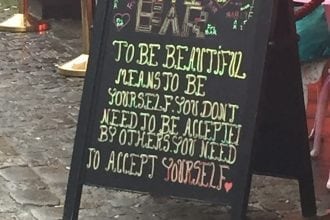 BEAR
TO BE BEAUTIFUL
MEANS TO BE
YOURSELF. YOU DON'T
NEED TO BE ACCEPTED
BY OTHERS. YOU NEED
TO ACCEPT YOURSELF.